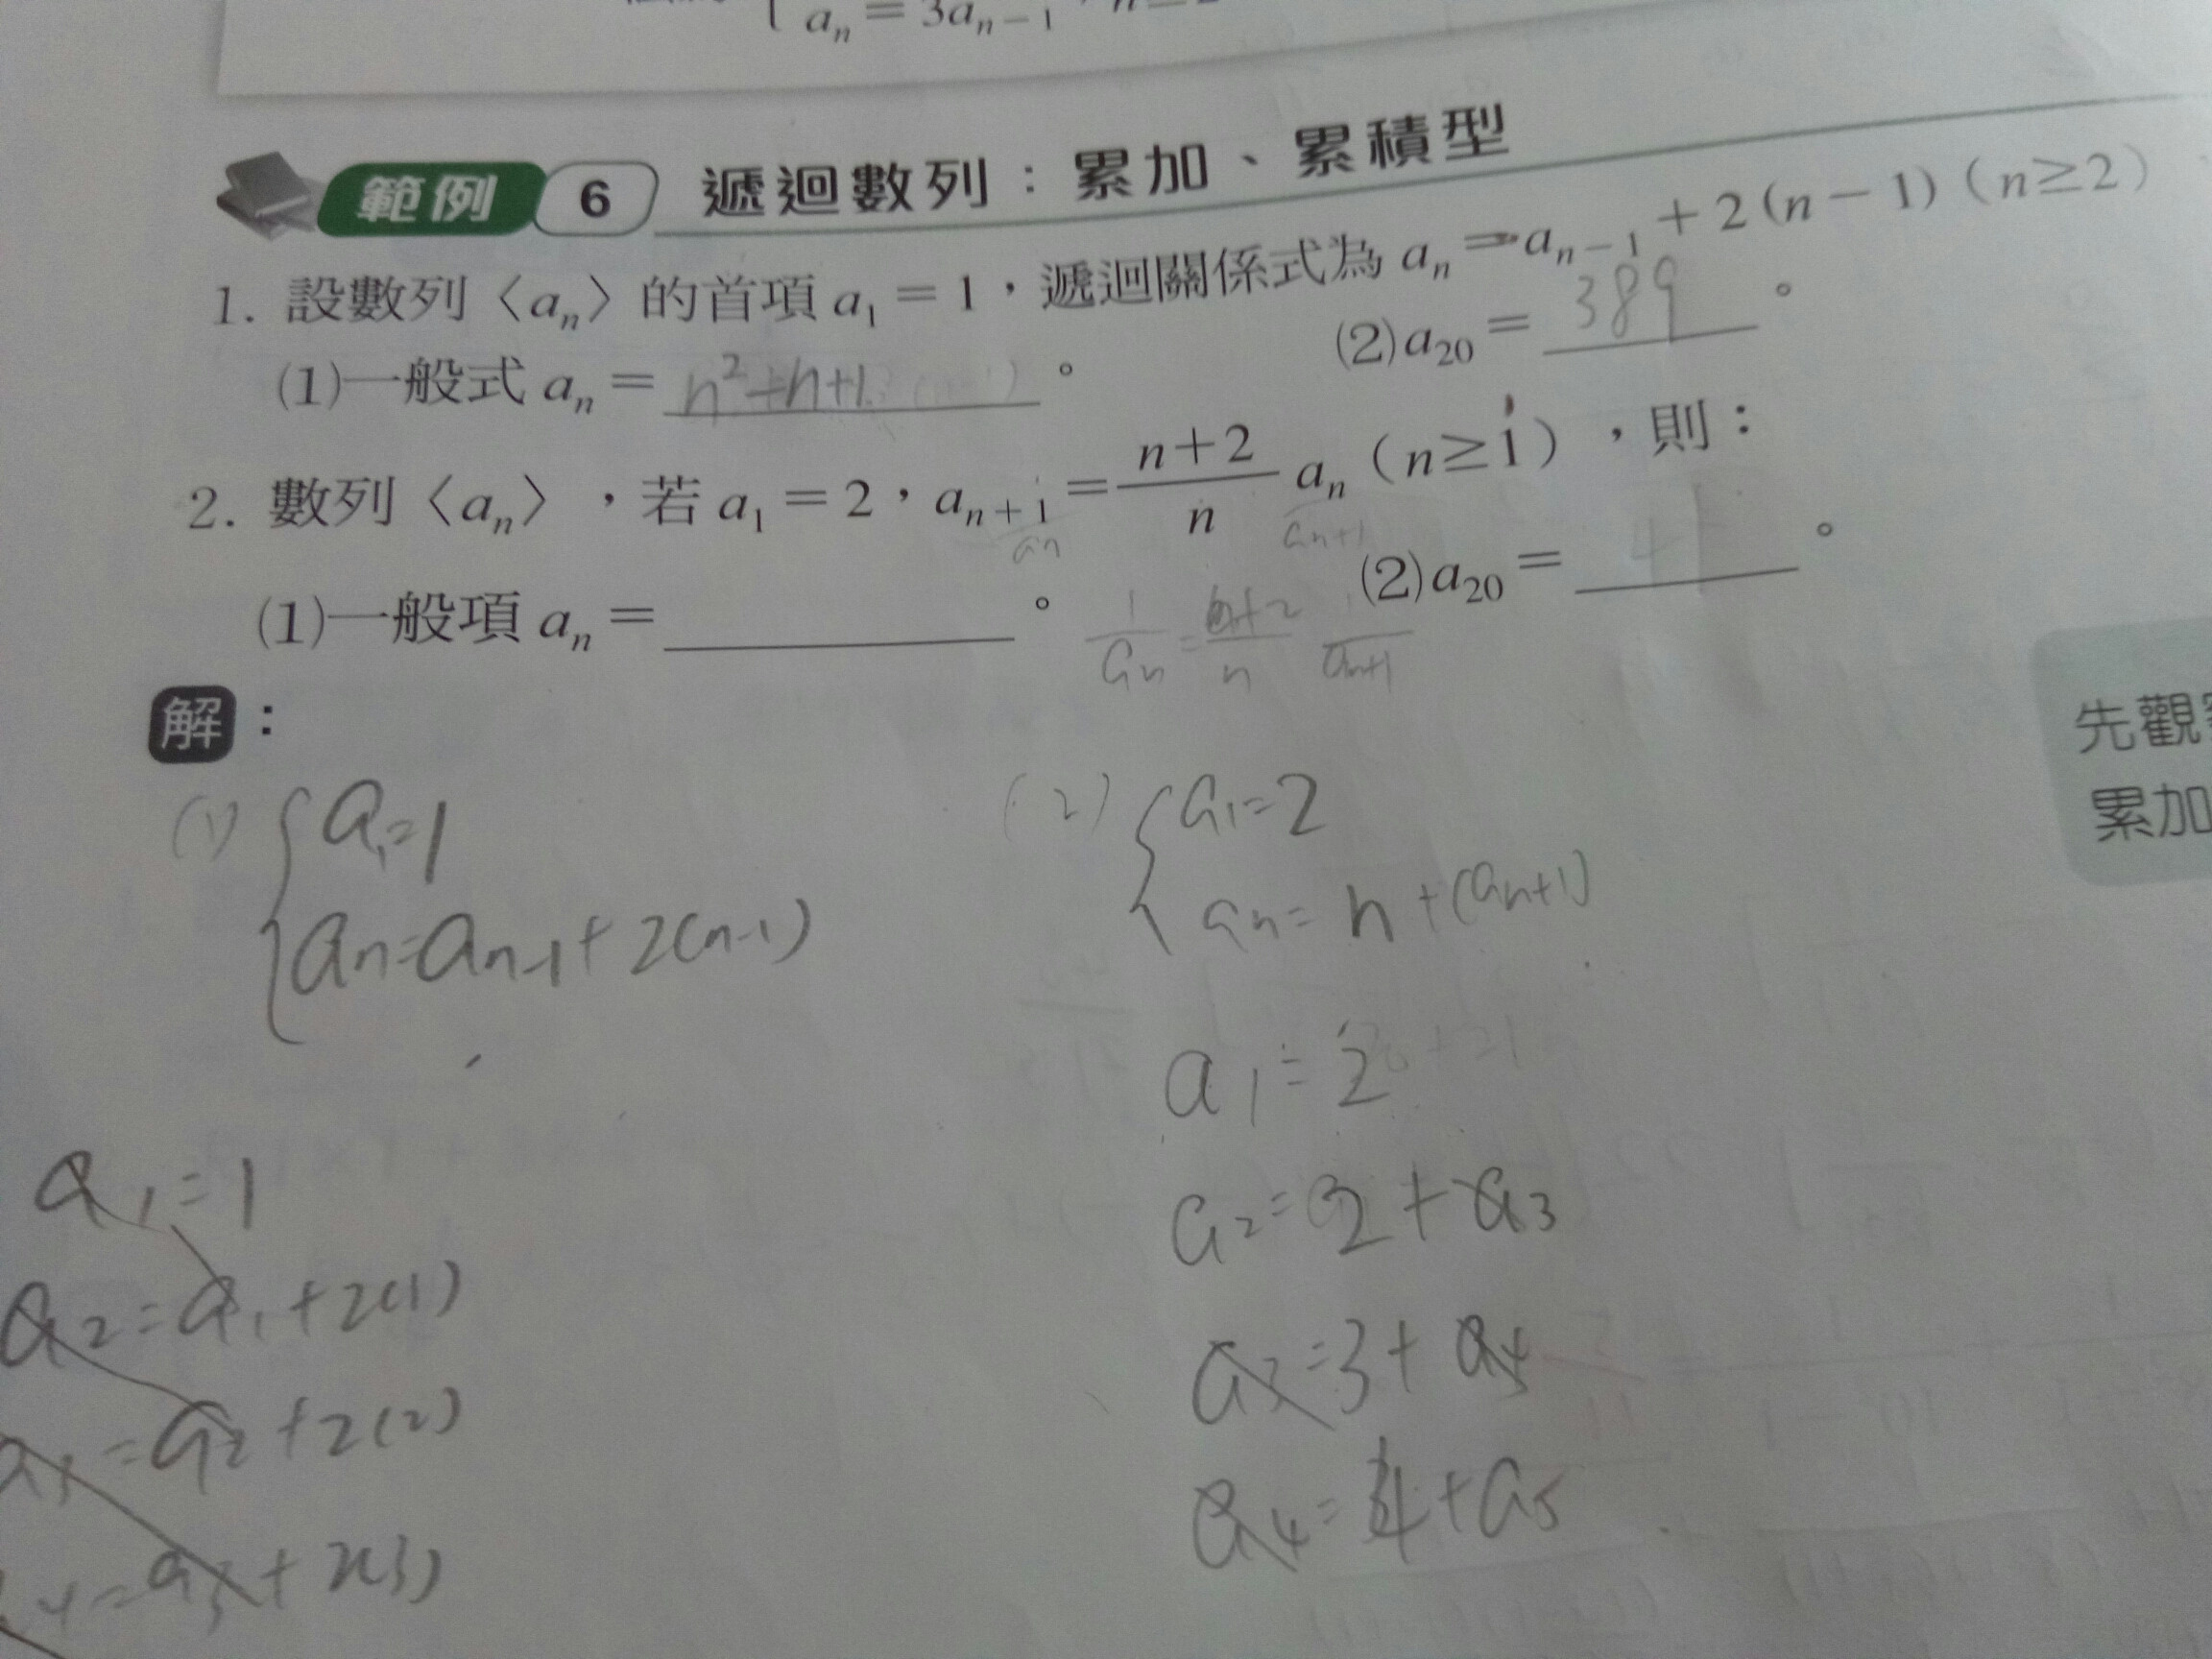 aₙ = 3aₙ₋₁
範例 6 遞迴數列：累加、累積型
1. 設數列〈aₙ〉的首項 a₁ = 1，遞迴關係式為 aₙ = aₙ₋₁ + 2(n − 1)（n ≥ 2）
(1)一般式 aₙ = n²+n+1。 (2)a₂₀ = 389。
2. 數列〈aₙ〉，若 a₁ = 2，aₙ₊₁ = (n+2)/n aₙ（n ≥ 1），則：
aₙ aₙ₊₁
(1)一般項 aₙ = 。 (2)a₂₀ = 。
1/aₙ = (n+2)/n 1/aₙ₊₁
解：
先觀
累加
(1) { a₁=1
aₙ=aₙ₋₁+2(n-1)
a₁=1
a₂=a₁+2(1)
=a₂+2(2)
=a₃+2(3)
(2) { a₁=2
aₙ=n+(aₙ+1)
a₁=2
a₂=2+a₃
a₃=3+a₄
a₄=4+a₅